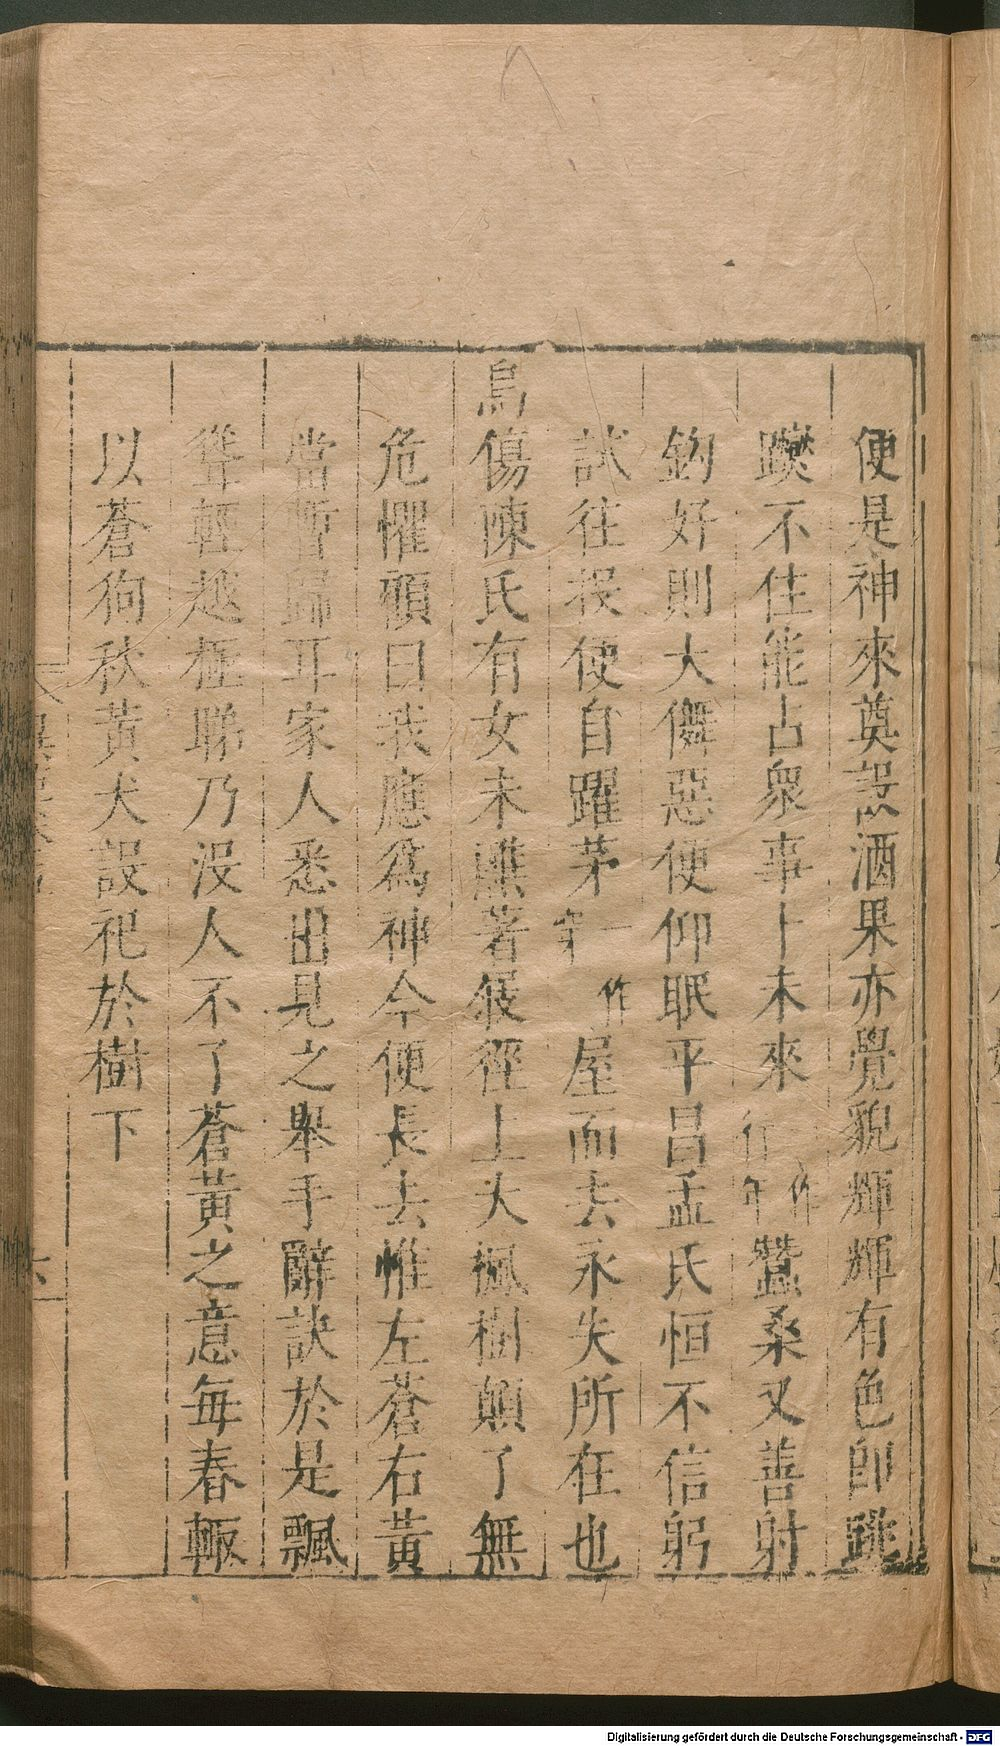 便是神來奠設酒果亦覺貌輝輝有色即跳
躞不住能占衆事卜未來一作行年蠶桑又善射
鈎好則大儛惡便仰眠平昌孟氏恒不信躬
試往投便自躍茅一作穿屋而去永失所在也
烏傷陳氏有女未醮著屐徑上大楓樹顛了無
危懼顧曰我應爲神今便長去惟左蒼右黄
當暫歸耳家人悉出見之舉手辭訣於是飄
聳輕越極睇乃没人不了蒼黄之意每春輙
以蒼狗秋黄犬設祀於樹下
六
Digitalisierung gefördert durch die Deutsche Forschungsgemeinschaft - DFG